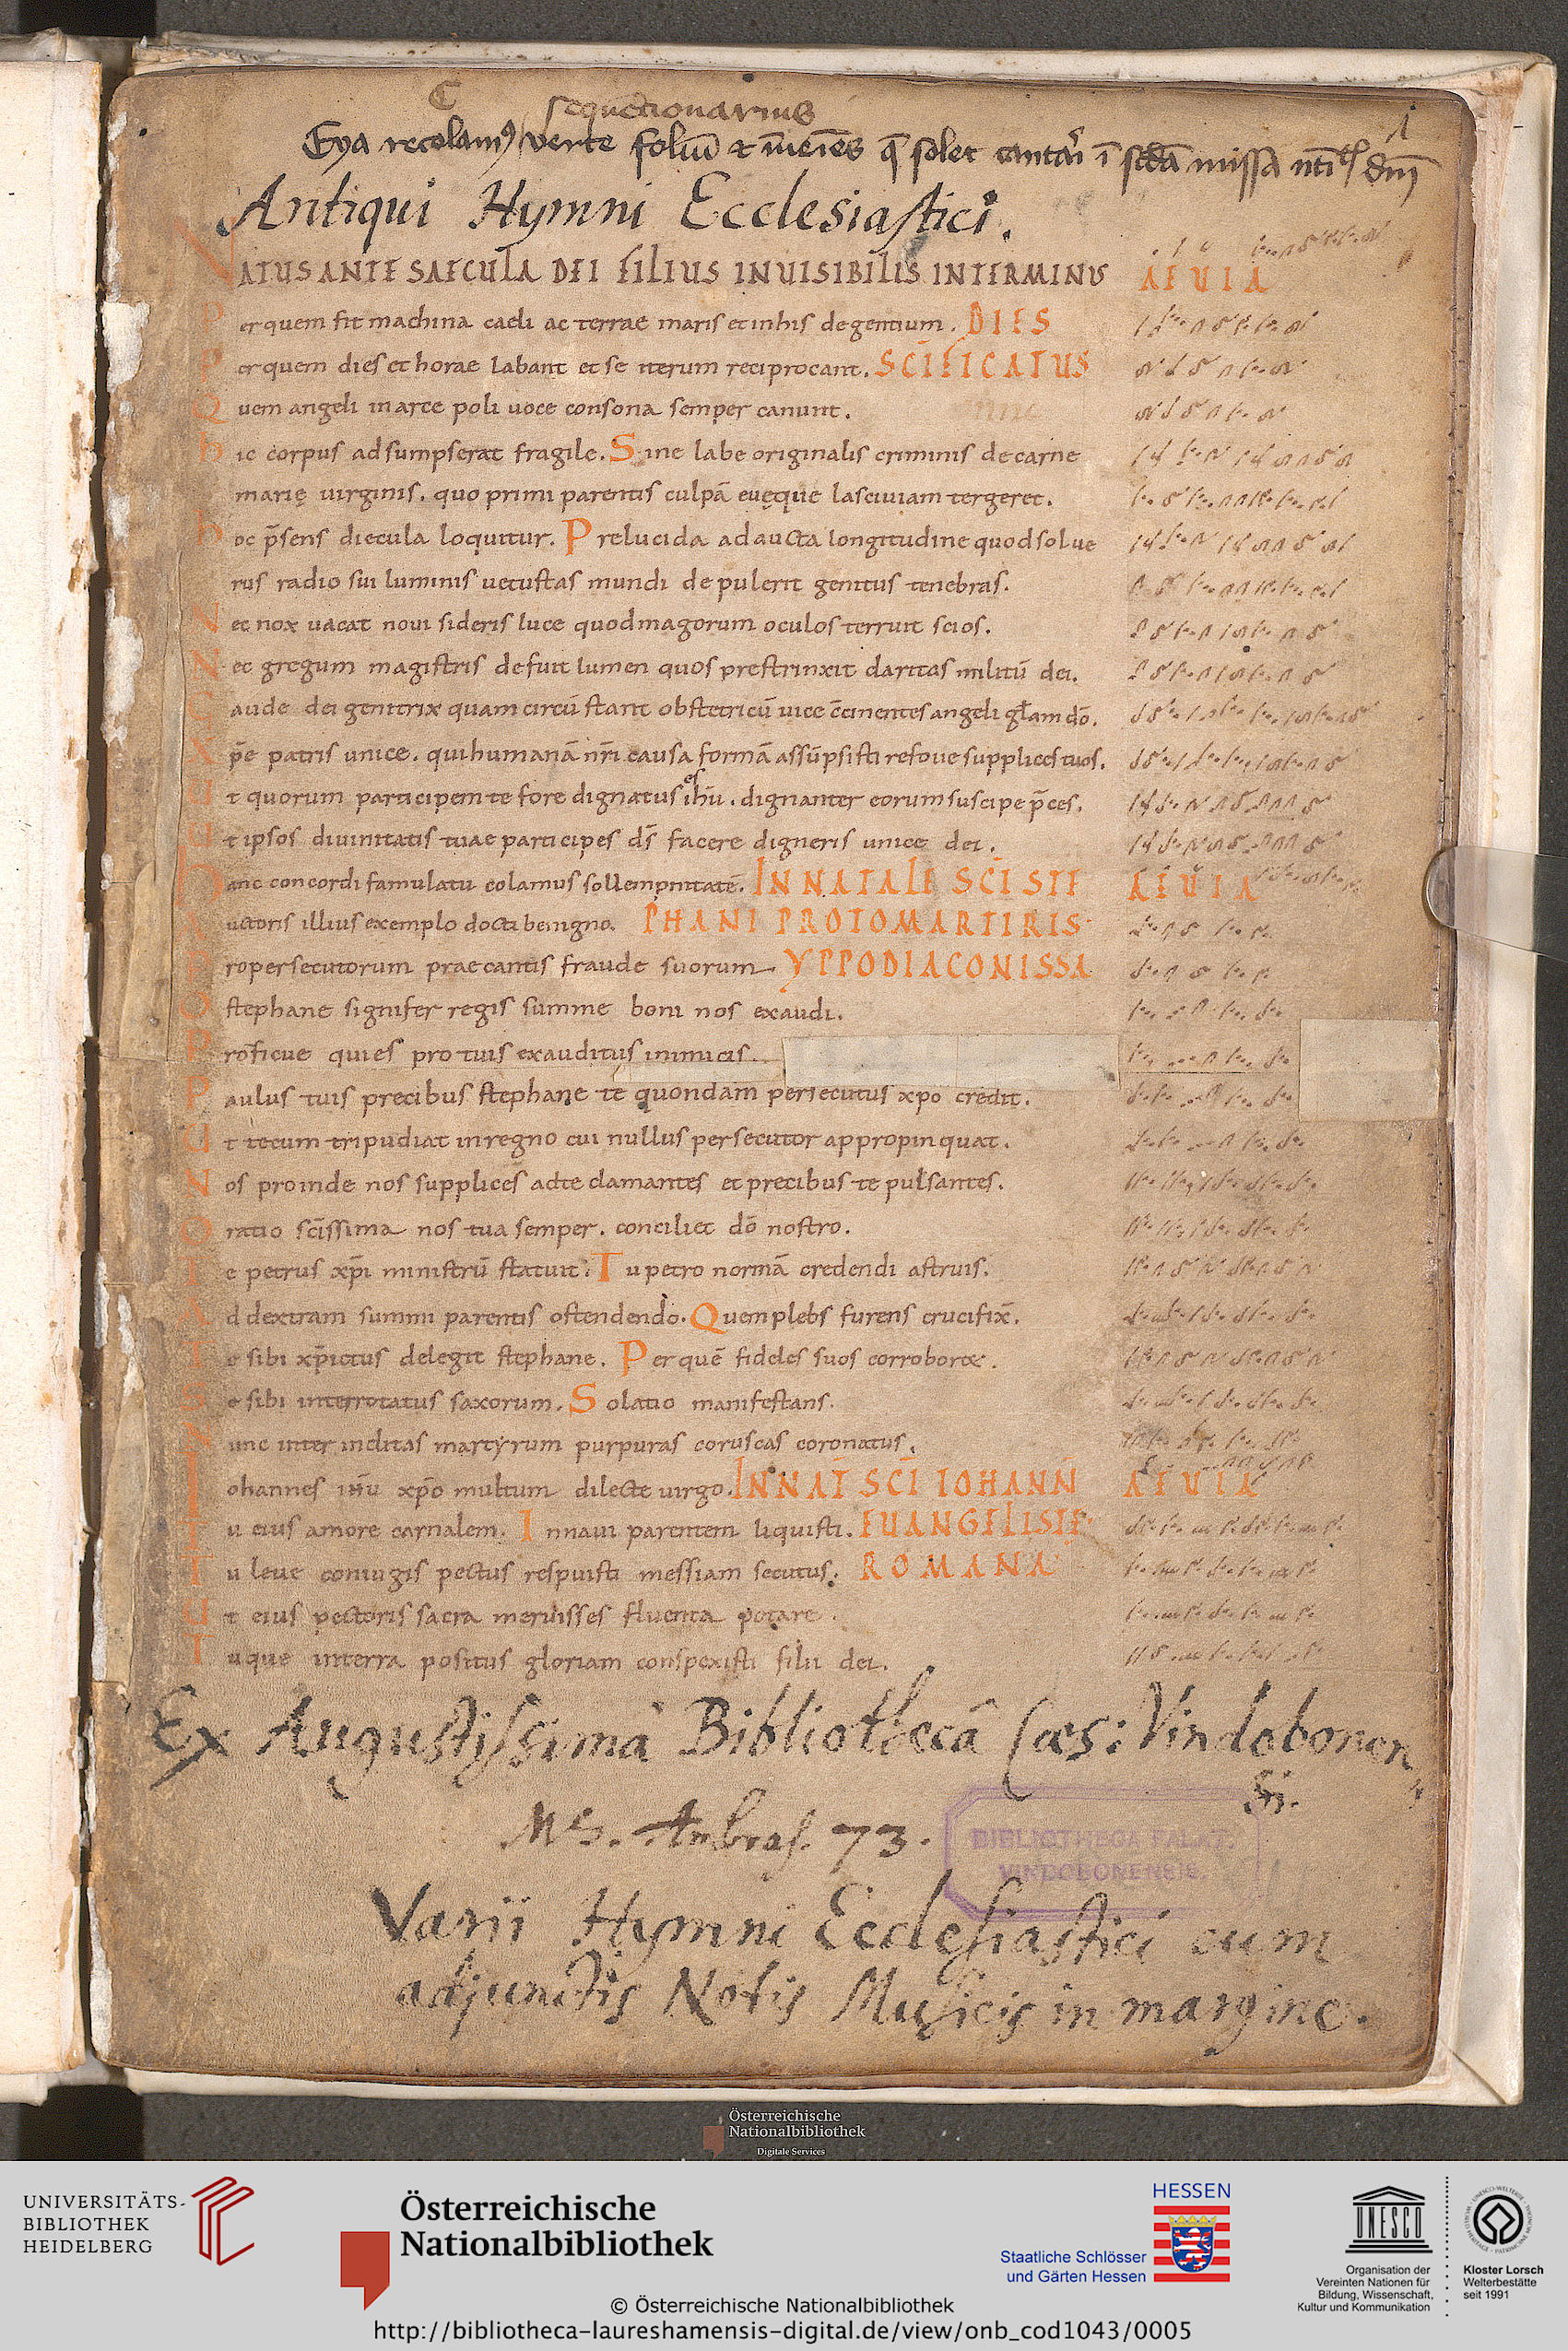 C
sequentionarius
Eya recolam9 verte foliū et īveīes q̄ solet cantari ī scdā missa
1
Antiqui Hymni Ecclesiastici.
NATUS ANTE SAECULA DEI FILIUS INUISIBILIS INTERMINUS AEUIA
Per quem fit machina caeli ac terrae maris et inhis degentium. DIES
Per quem dies et horae labant et se iterum reciprocant. SCĪFICATUS
Quem angeli inarce poli uoce consona semper canunt.
hic corpus adsumpserat fragile. Sine labe originalis criminis de carne
marię uirginis. quo primi parentis culpā euęque lasciuiam tergeret.
hoc p̄sens diecula loquitur. Prelucida adaucta longitudine quod sol ue
rus radio sui luminis uetustas mundi depulerit genitus tenebras.
Nec nox uacat noui sideris luce quod magorum oculos terruit scios.
Nec gregum magistris defuit lumen quos prestrinxit claritas militū dei.
Gaude dei genitrix quam circū stant obstetricū uice c̄cinentes angeli glām dō.
Xp̄e patris unice. qui humanā nr̄i causa formā assūpsisti refoue supplices tuos.
Et quorum participem te fore dignatus es ih̄u. dignanter eorum suscipe p̄ces.
Ut ipsos diuinitatis tuae participes dś facere digneris unice dei.
Hanc concordi famulatu colamus sollempnitatē. IN NATALE SCĪ STE AEUIA
Auctoris illius exemplo docti benigno. PHANI PROTOMARTIRIS
Pro persecutorum praecantis fraude suorum. YPPODIACONISSA
O stephane signifer regis summe boni nos exaudi.
Proficue qui es pro tuis exauditus inimicis.
Paulus tuis precibus stephane te quondam persecutus xpo credit.
Et tecum tripudiat in regno cui nullus persecutor appropinquat.
Nos proinde nos supplices ad te clamantes et precibus te pulsantes.
Oratio scīssima nos tua semper. conciliet dō nostro.
Te petrus xp̄i ministrū statuit. Tu petro normā credendi astruis.
Ad dextram summi parentis ostendendo. Quem plebs furens crucifix̄.
Te sibi xp̄ictus delegit stephane. Per quē fideles suos corroboret.
Se sibi interrotatus saxorum. Solatio manifestans.
Nunc inter inclitas martyrum purpuras coruscas coronatus.
Iohannes ih̄u xp̄o multum dilecte uirgo. IN NAT̄ SCĪ IOHANN̄ AEUIA
Tu eius amore carnalem. In naui parentem liquisti. EUANGELISTE
Tu leue coniugis pectus respuisti messiam secutus. ROMANA
Ut eius pectoris sacra meruisses fluenta potare.
Tuque in terra positus gloriam conspexisti filii dei.
Ex Augustissimâ Bibliothecâ Cæs: Vindobonen,,
si.
MS. Ambras. 73.
BIBLIOTHECA PALAT.
VINDOBONENSIS.
Varii Hymni Ecclesiastici cum
adjunctis Notis Musicis in margine.
Österreichische
Nationalbibliothek
Digitale Services
UNIVERSITÄTS-
BIBLIOTHEK
HEIDELBERG
Österreichische
Nationalbibliothek
HESSEN
Staatliche Schlösser
und Gärten Hessen
UNESCO
Organisation der
Vereinten Nationen für
Bildung, Wissenschaft,
Kultur und Kommunikation
Kloster Lorsch
Welterbestätte
seit 1991
© Österreichische Nationalbibliothek
http://bibliotheca-laureshamensis-digital.de/view/onb_cod1043/0005